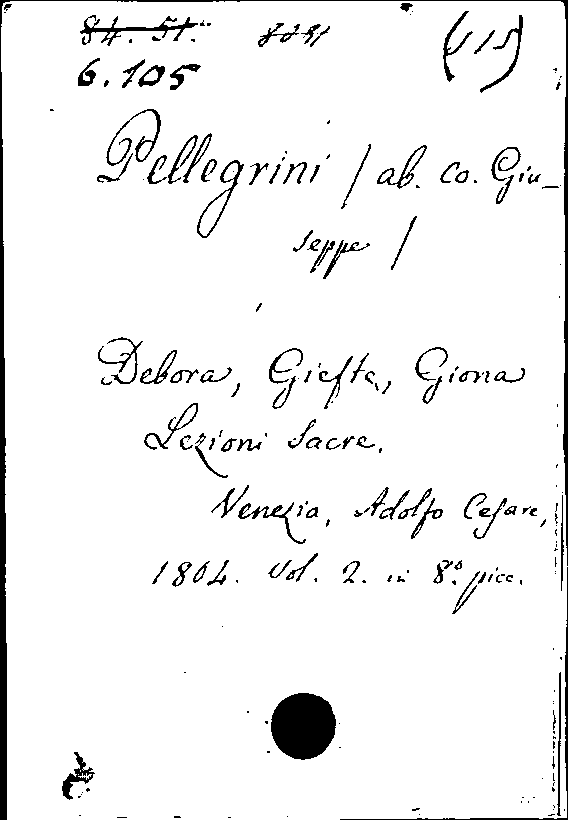 84. 51.
6.105
Pellegrini / ab. co. Giu_
seppe /
Debora, Giefte, Giona
Lezioni Sacre.
Venezia, Adolfo Cesare,
1804. Vol. 2. in 8.° picc.